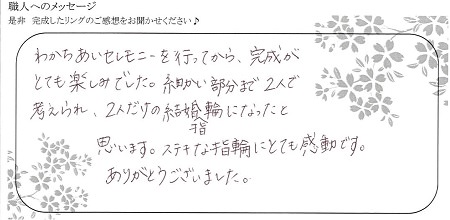 職人へのメッセージ
是非 完成したリングのご感想をお聞かせください♪
わかちあいセレモニーを行ってから、完成が
とても楽しみでした。細かい部分まで2人で
考えられ、2人だけの結婚指輪になったと
思います。ステキな指輪にとても感動です。
ありがとうございました。